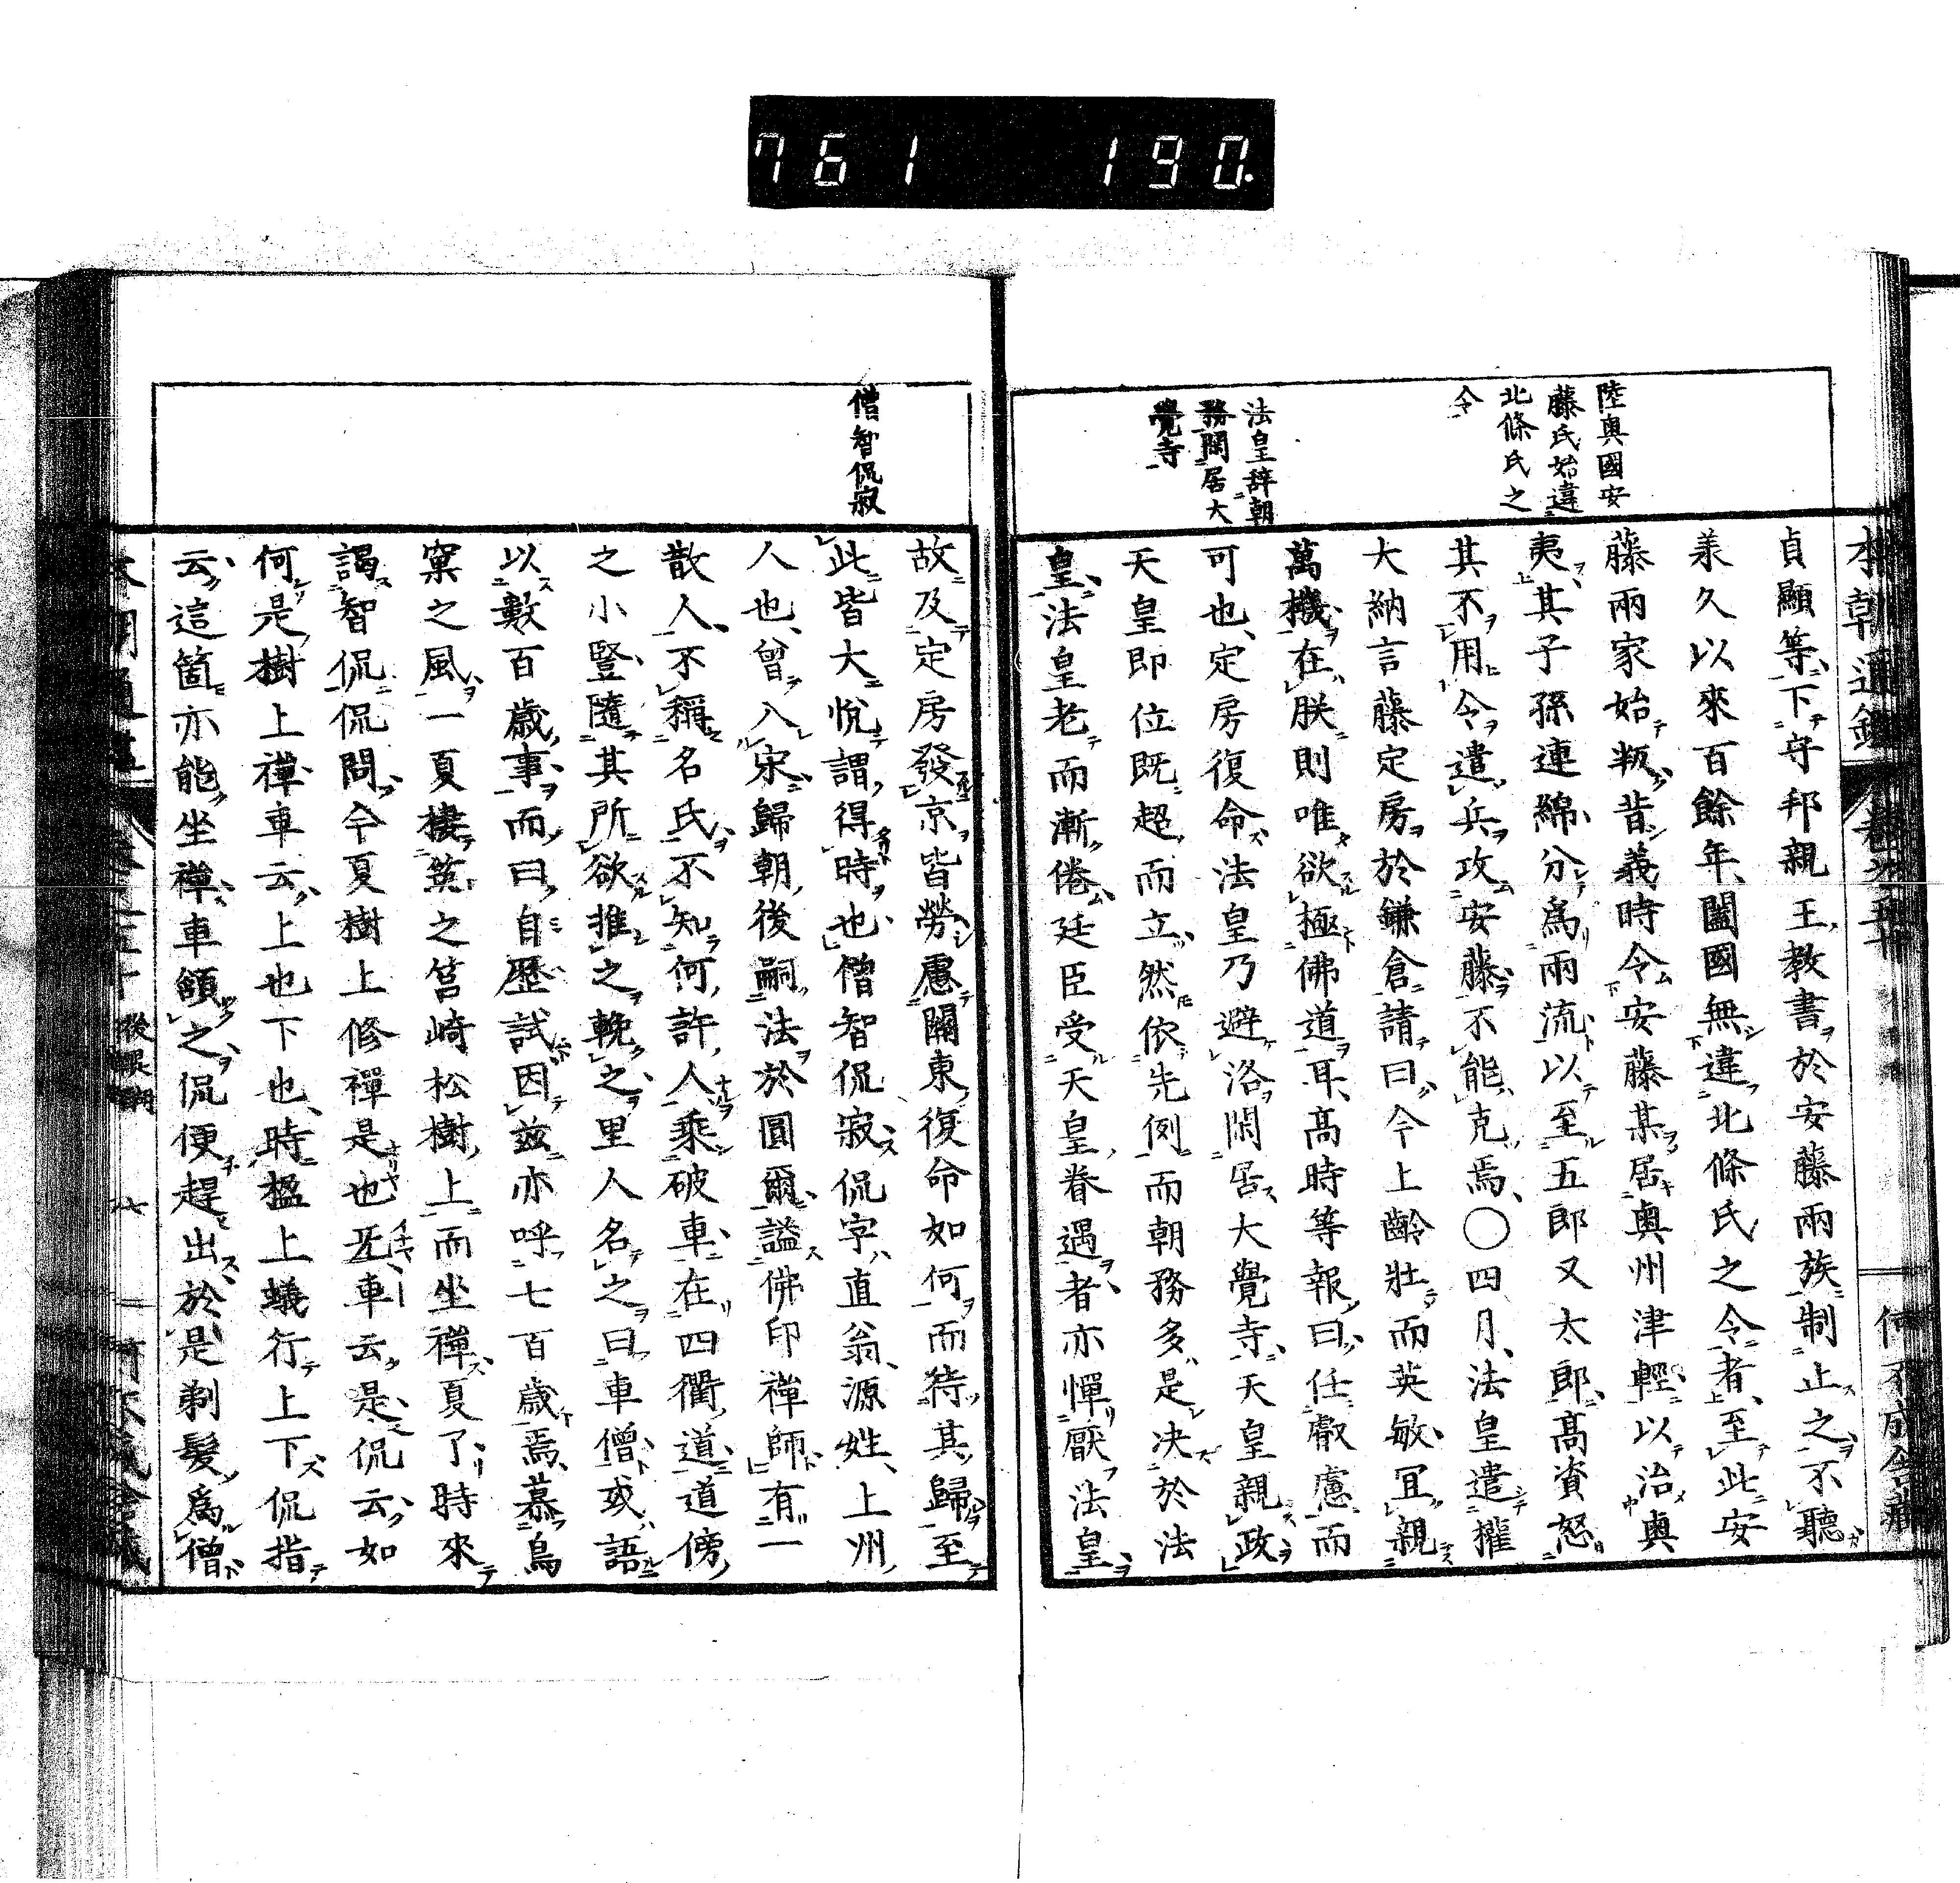 761 190.
陸奥國安
藤氏始違
北條氏之
令
法皇辞朝
務閑居大
覺寺
貞顯等下守邦親王教書於安藤兩族制止之不聽
承久以來百餘年闔國無違北條氏之令者至此安
藤兩家始叛昔義時令安藤某居奥州津輕以治奥
夷其子孫連綿分爲兩流以至五郎又太郎高資怒
其不用令遣兵攻安藤不能克焉〇四月法皇遣權
大納言藤定房於鎌倉請曰今上齡壯而英敏宜親
萬機在朕則唯欲極佛道耳高時等報曰任叡慮而
可也定房復命法皇乃避洛閑居大覺寺天皇親政
天皇即位既超而立然依先例而朝務多是决於法
皇法皇老而漸倦廷臣受天皇眷遇者亦憚厭法皇
僧智侃寂
故及定房發京皆勞慮關東復命如何而待其歸至
此皆大悅謂得時也僧智侃寂侃字直翁源姓上州
人也曾入宋歸朝後嗣法於圓爾謚佛印禪師有一
散人不稱名氏不知何許人乘破車在四衢道道傍
之小豎隨其所欲推之輓之里人名之曰車僧或語
以數百歳事而曰自歷試因茲亦呼七百歳焉慕鳥
窠之風一夏棲筑之筥崎松樹上而坐禪夏了時來
謁智侃侃問今夏樹上修禪是也無車云是侃云如
何是樹上禪車云上也下也時楹上蟻行上下侃指
云這箇亦能坐禪車頷之侃便趕出於是剃髮爲僧